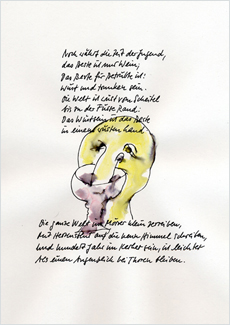 Noch währt die Zeit der Jugend,
das Beste ist nur Wein;
Das Beste für Betrübte ist:
Wüst und trunken sein.
Die Welt ist wüst vom Scheitel
bis zu der Füße Rand.
Das Wüstsein ist das Beste
in einem wüsten Land
Die ganze Welt im Mörser klein zerreiben,
Mit Herzensblut auf die neun Himmel schreiben,
Und hundert Jahr im Kerker sein, ist leichter
Als einen Augenblick bei Thoren bleiben.